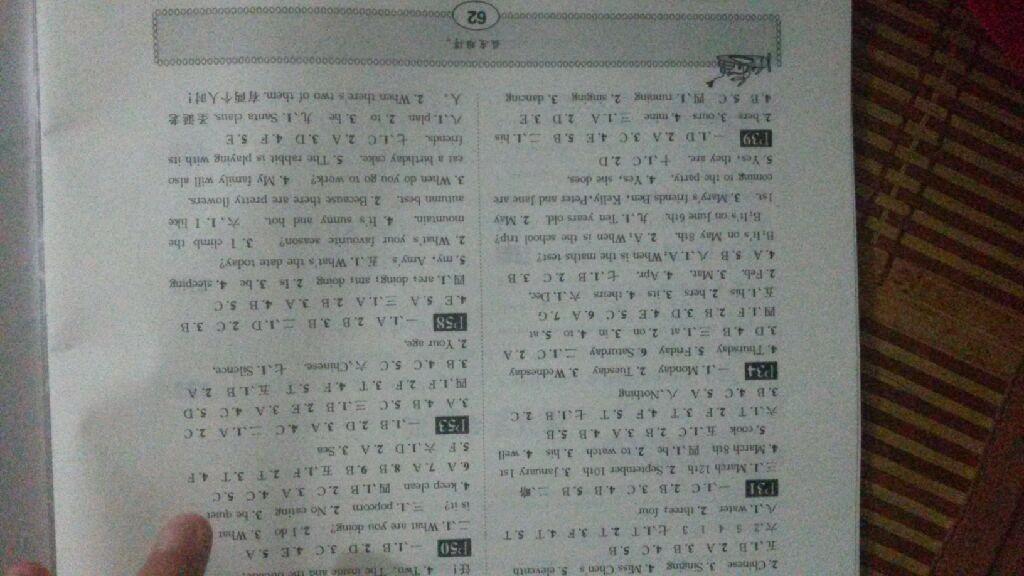 2. Chinese 3. Singing 4. Miss Chen's 5. eleventh
五、1. B 2. A 3. B 4. C 5. B
六、2 5 4 1 3 七、1. T 2. T 3. F 4. T 5. T
八、1. water 2. three; four
P31 一、1. C 2. B 3. C 4. B 5. B 二、略
三、1. March 12th 2. September 10th 3. January 1st
4. March 8th 四、1. be 2. to watch 3. his 4. well
5. cook 五、1. C 2. B 3. A 4. B 5. B
六、1. T 2. F 3. T 4. F 5. T 七、1. B 2. C
3. B 4. C 5. A 八、Nothing
P34 一、1. Monday 2. Tuesday 3. Wednesday
4. Thursday 5. Friday 6. Saturday 二、1. C 2. A
3. D 4. B 三、1. at 2. on 3. in 4. to 5. at
四、1. F 2. B 3. D 4. E 5. C 6. A 7. G
五、1. his 2. hers 3. its 4. theirs 六、1. Dec.
2. Feb. 3. Mar. 4. Apr. 七、1. B 2. C 3. B
4. A 5. B 八、1. A, When is the maths test?
B, It's on May 8th. 2. A, When is the school trip?
B, It's on June 6th. 九、1. Ten years old. 2. May
1st. 3. Mary's friends Ben, Kelly, Peter and Jane are
coming to the party. 4. Yes, she does.
5. Yes, they are. 十、1. C 2. D
P39 一、1. D 2. A 3. C 4. E 5. B 二、1. his
2. hers 3. ours 4. mine 三、1. A 2. D 3. E
4. B 5. C 四、1. running 2. singing 3. dancing
任! 4. Two. The inside and the outside.
P50 一、1. B 2. D 3. C 4. E 5. A
二、1. What are you doing? 2. I do 3. What
is it? 三、1. popcorn 2. No eating 3. be quiet
4. keep clean 四、1. B 2. C 3. A 4. C 5. C
6. A 7. A 8. B 9. B 五、1. F 2. T 3. T 4. F
5. F 六、1. D 2. A 3. Sea
P53 一、1. B 2. D 3. A 4. C 二、1. A 2. C
3. A 4. B 5. C 三、1. B 2. E 3. A 4. C 5. D
四、1. F 2. F 3. T 4. F 5. T 五、1. B 2. A
3. B 4. C 5. C 六、Chinese. 七、1. Silence.
2. Your age.
P58 一、1. A 2. B 3. B 二、1. D 2. C 3. B
4. E 5. A 三、1. A 2. B 3. A 4. B 5. C
四、1. are; doing; am; doing 2. Is 3. be 4. sleeping
5. my, Amy's 五、1. What's the date today?
2. What's your favourite season? 3. I climb the
mountain. 4. It's sunny and hot. 六、1. I like
autumn best. 2. Because there are pretty flowers.
3. When do you go to work? 4. My family will also
eat a birthday cake. 5. The rabbit is playing with its
friends. 七、1. C 2. A 3. D 4. F 5. E
八、1. plan 2. to 3. be 九、1. Santa claus. 圣诞老
人。 2. When there's two of them. 有两个人时!
62